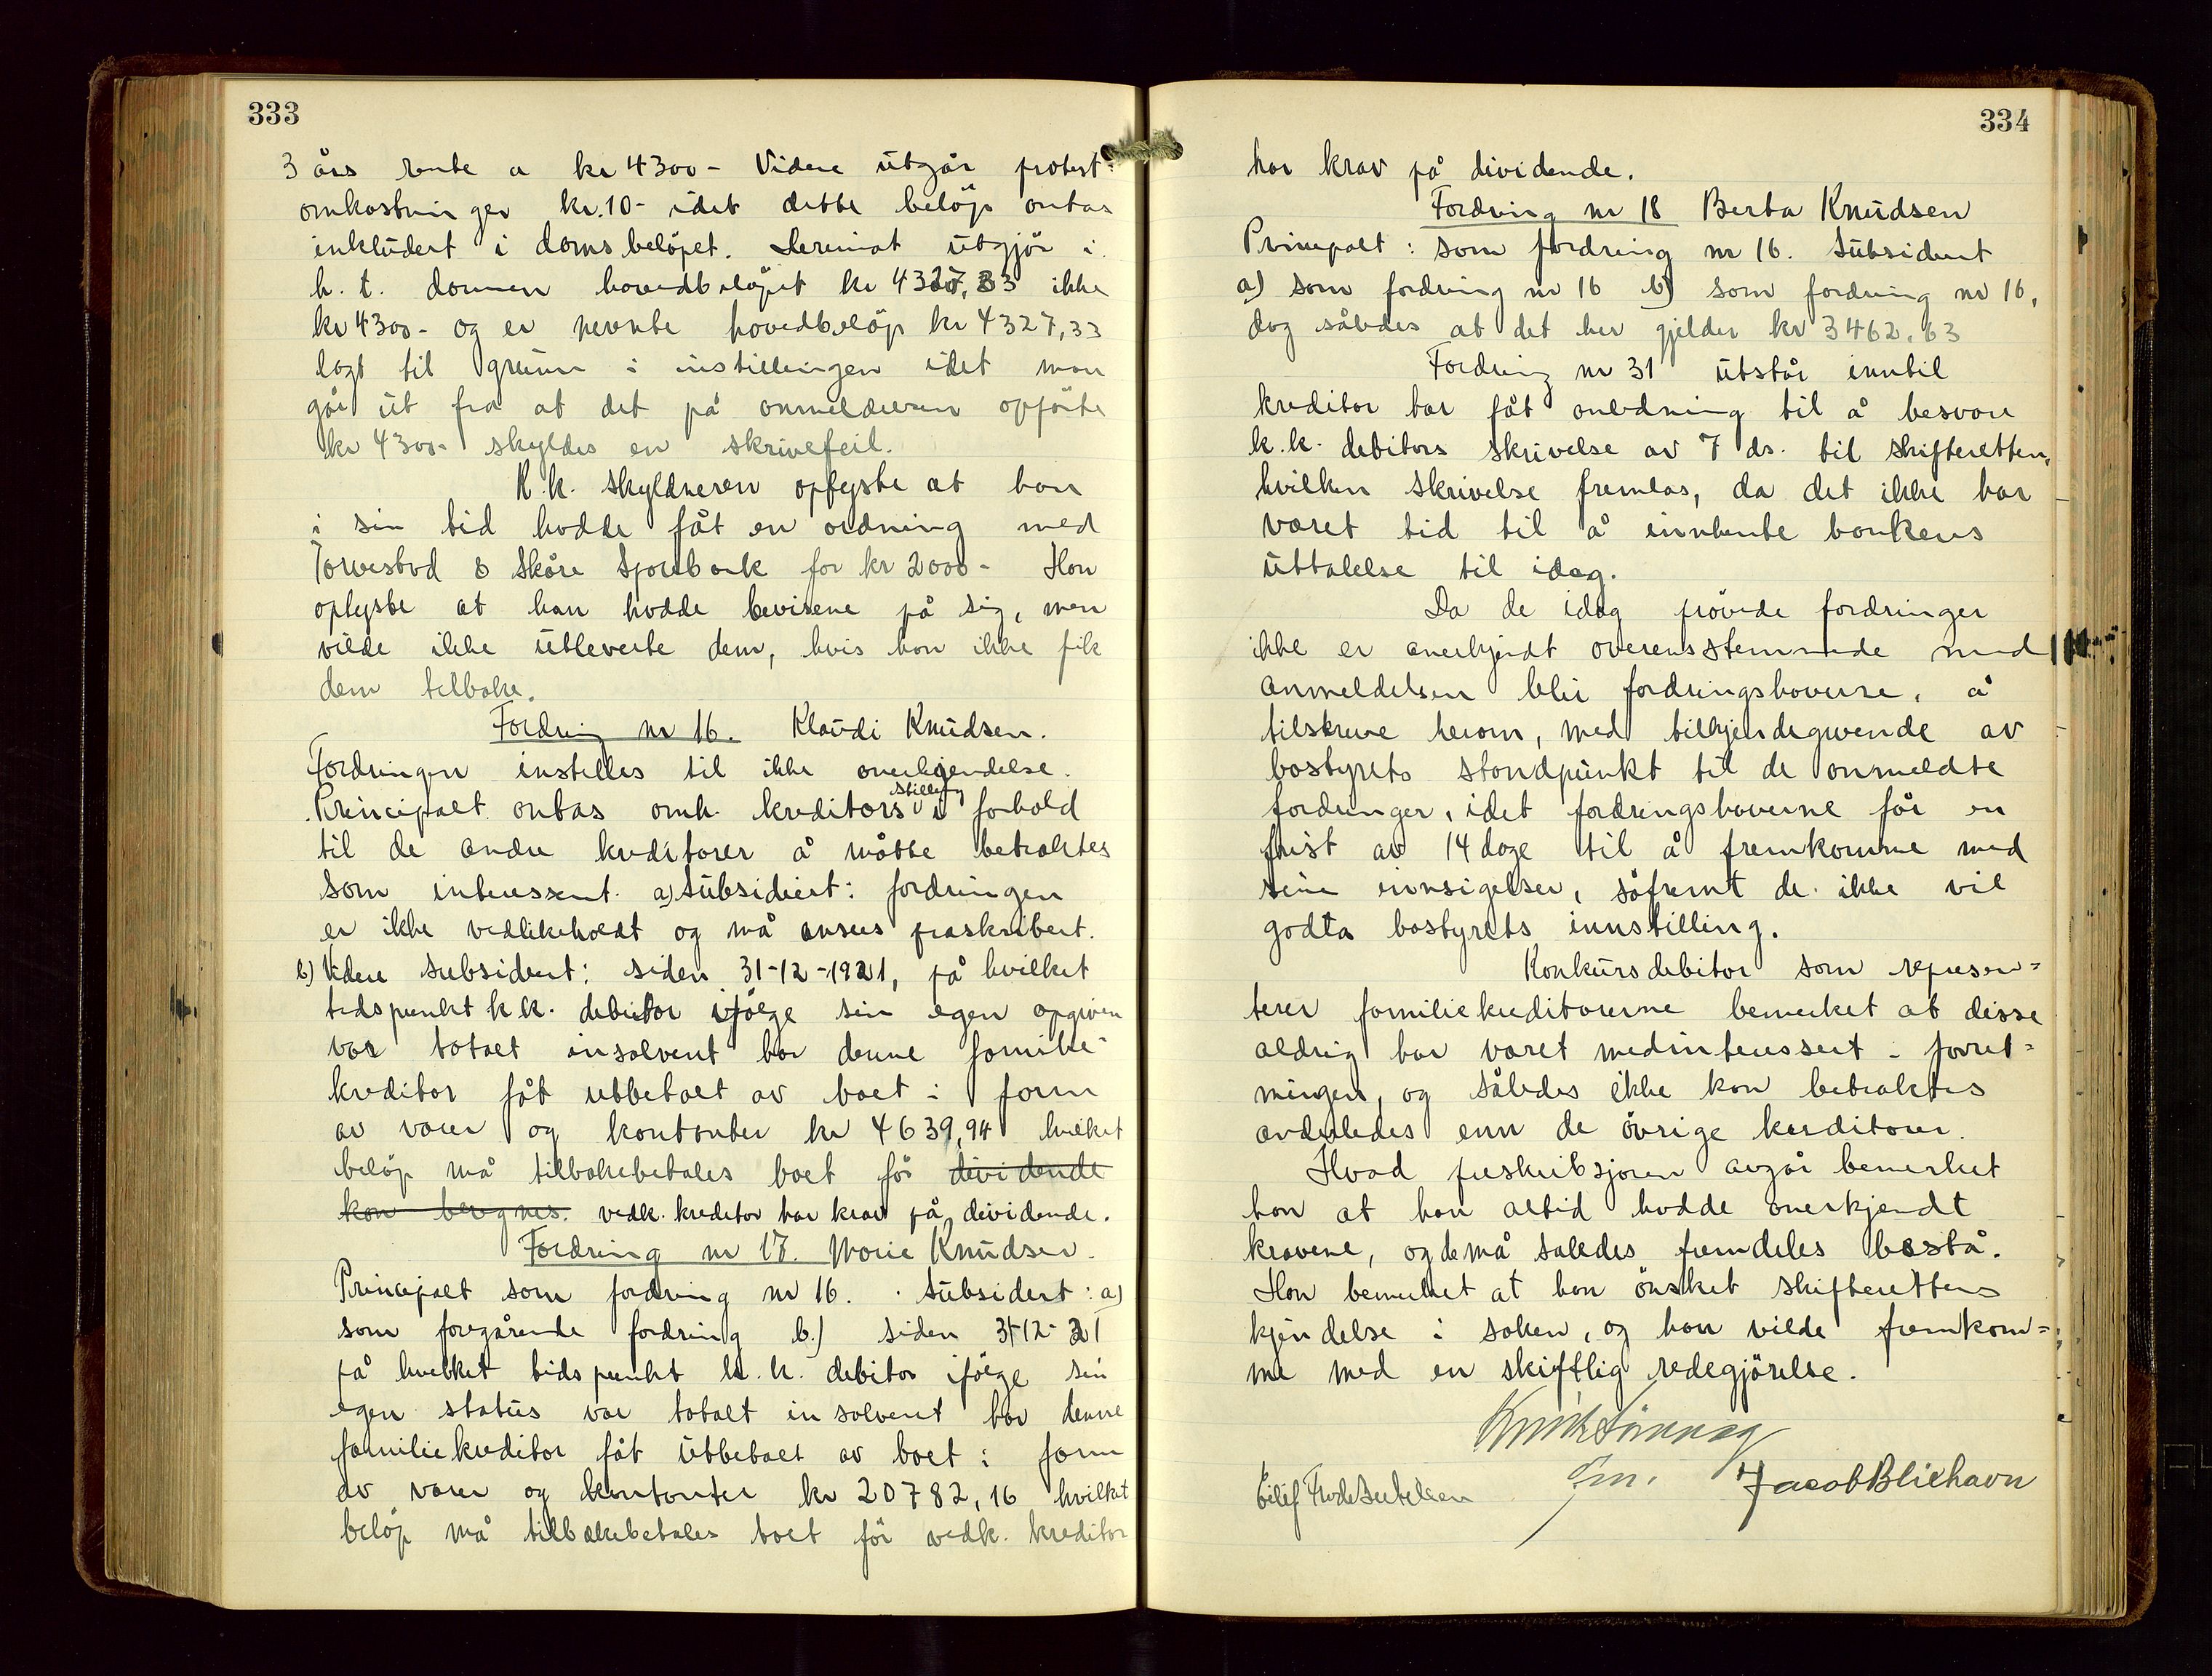 333
3 års rente a kr 4300- Videre utgår protest-
omkostninger kr. 10- idet dette beløp antas
inkludert i domsbeløpet. Derimot utgjør i
h. t. dommen hovedbeløpet kr 4327,33 ikke
kr 4300- og er nevnte hovedbeløp kr 4327,33
lagt til grunn i instillingen idet man
går ut fra at det på anmeldelsen opførte
kr 4300- skyldes en skrivefeil.
K.k. skyldneren oplyste at han
i sin tid hadde fåt en ordning med
Torvestad & Skåre Sparebank for kr 2000- Han
oplyste at han hadde bevisene på sig, men
vilde ikke utleverte dem, hvis han ikke fik
dem tilbake.
Fordring nr 16. Klaudi Knudsen.
Fordringen instilles til ikke anerkjendelse.
Principalt antas omh. kreditors stilling i forhold
til de andre kreditorer å måtte betraktes
som interessent. a) Subsidiert: fordringen
er ikke vedlikeholdt og må ansees præskribert.
b) Videre subsidiert: siden 31-12-1921, på hvilket
tidspunkt k.k. debitor ifølge sin egen opgiven
var totalt insolvent har denne familie-
kreditor fåt utbetalt av boet i form
av varer og kontanter kr 4639,94 hvilket
beløp må tilbakebetales boet før dividende
kan beregnes. vedk. kreditor har krav på dividende.
Fordring nr 17. Marie Knudsen.
Principalt som fordring nr 16. Subsidert: a)
som foregående fordring b.) siden 31-12-21
på hvilket tidspunkt k.k. debitor ifølge sin
egen status var totalt insolvent har denne
familiekreditor fåt utbetalt av boet i form
av varer og kontanter kr 20782,16 hvilket
beløp må tilbakebetales boet før vedk. kreditor
334
har krav på dividende.
Fordring nr 18 Berta Knudsen
Principalt: som fordring nr 16. Subsidiert
a) som fordring nr 16 b) som fordring nr 16,
dog således at det her gjelder kr 3462.63
Fordring nr 31 utstår inntil
kreditor har fåt anledning til å besvare
k.k. debitors skrivelse av 7 ds. til skifteretten,
hvilken skrivelse fremlas, da det ikke har
været tid til å innhente bankens
uttalelse til idag.
Da de idag prøvede fordringer
ikke er anerkjendt overensstemmende med
anmeldelsen blir fordringshaverne, å
tilskrive herom, med tilkjendegivende av
bostyrets standpunkt til de anmeldte
fordringer, idet fordringshaverne får en
frist av 14 dage til å fremkomme med
sine innsigelser, såfremt de ikke vil
godta bostyrets innstilling.
Konkursdebitor som represen=
terer familiekreditorerne bemerket at disse
aldrig har været medinteressert i forret=
ningen, og således ikke kan betraktes
anderledes enn de øvrige kreditorer.
Hvad preskribsjonen angår bemerket
han at han altid hadde anerkjendt
kravene, og de må således fremdeles bestå.
Han bemerket at han ønsket skifterettens
kjendelse i saken, og han vilde fremkom=
me med en skiftlig redegjørelse.
Jacob Bliehavn